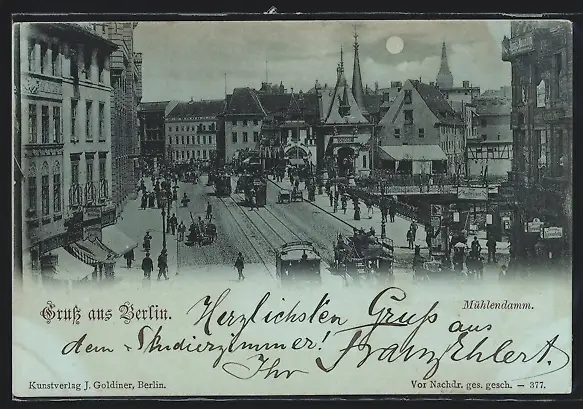 Gruß aus Berlin.
Mühlendamm.
Herzlichsten Gruß aus
dem Studierzimmer!
Ihr Franz Ehlert.
Kunstverlag J. Goldiner, Berlin.
Vor Nachdr. ges. gesch. — 377.